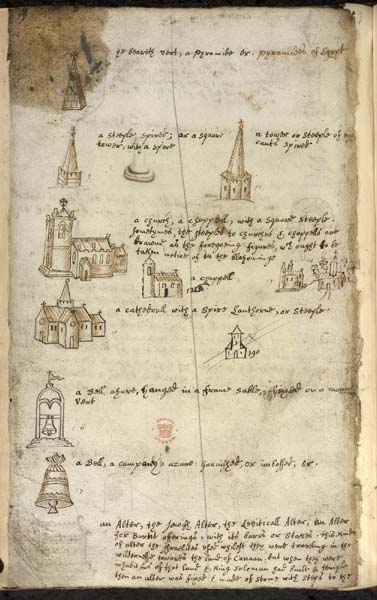 he beareth vert, a pyramide or. pyramides of Egypt
a steeple spired; or a square
tower, with a spire
a tower or steeple of
cants spired
a church, a chappell, with a square steeple.
sometymes, the steeples to churches & chappells are
as the foregoing figures, wch ought to be
taken notice of in the blasoninge
a chappell
a cathedrall with a spire Lanthorne, or steeple.
190
a Bell azure, hanged in a frame sable, on a mount
vert
16
a Bell, a campane azure garnished, or imbossed, or.
17
an Alter, the Jewish Alter, the Leviticall Alter, an Alter
for Burnt offerings, with its bares or staves. this kind
of alter the Israelites used whilest they were traveling in the
wildernesse towards the land of Canaan. but when they were
of that land & King Solomon had built a temple
then an alter was fixed & made of stone with steps to the